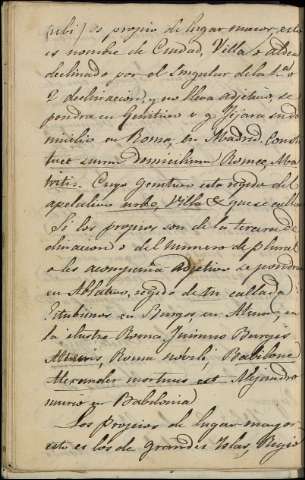 (ubi) es propio de lugar menor, esto
es nombre de Ciudad, Villa o aldea
declinado por el Singular de la 1.ª o
2 declinacion, y no lleva adjetivo, se
pondra en Genitivo v. g. Fijara su do
micilio en Roma, en Madrid. Const
tuet suum domicilium Romæ, Ma
triti. Cuyo genitivo esta regido del
apelativo urbe, Villa &c que se calla
Si los propios son de la tercera de
clinacion o del numero de plural
o les acompaña Adjetivo se pondra
en Ablativo, regido de In callada
Estubimos en Burgos, en Alcira, en
la ilustre Roma, Fuimus Burgis
Roma nobili, Babilone
Alexander mortuus est Alejandro
murio en Babilonia
Los propios de lugar mayor
esto es los de grandes Islas, Regio